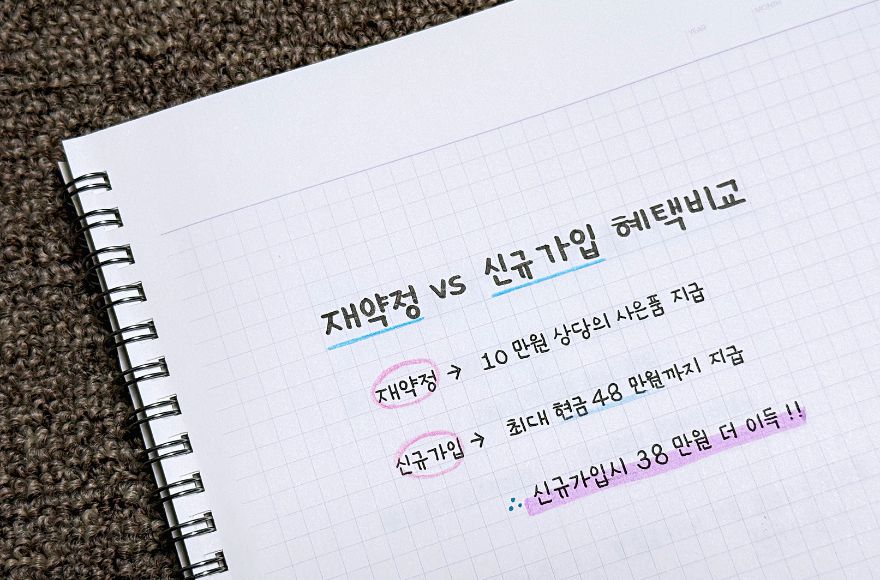 YEAR MONTH
재약정 vs 신규가입 혜택비교
재약정 → 10만원 상당의 사은품 지급
신규가입 → 최대 현금 48만원까지 지급
∴ 신규가입시 38만원 더 이득!!